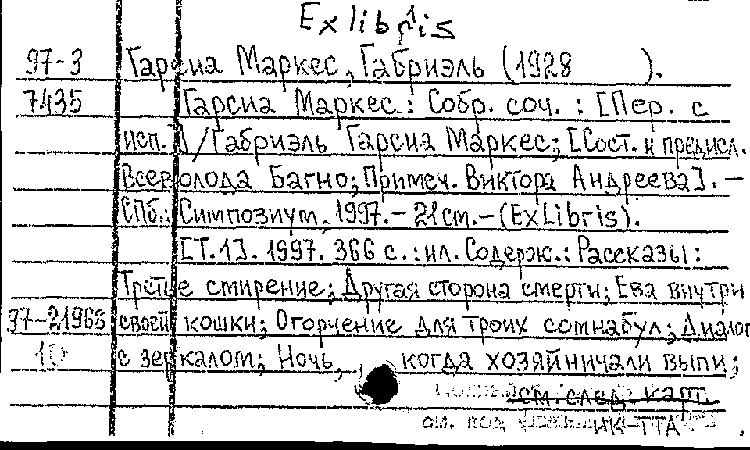 Ex libris
97-3 Гарсиа Маркес, Габриэль (1928 ).
7435 Гарсиа Маркес : Собр. соч. : [Пер. с
исп.] / Габриэль Гарсиа Маркес; [Сост. и предисл.
Всеволода Багно; Примеч. Виктора Андреева]. -
СПб.: Симпозиум, 1997. - 21 см. - (Ex Libris).
[Т.1]. 1997. 366 с. : ил. Содерж.: Рассказы:
Третье смирение; Другая сторона смерти; Ева внутри
97-21965 своей кошки; Огорчение для троих сомнабул; Диалог
10 с зеркалом; Ночь, когда хозяйничали выпи;
см. след. карт.
НК-ТТА